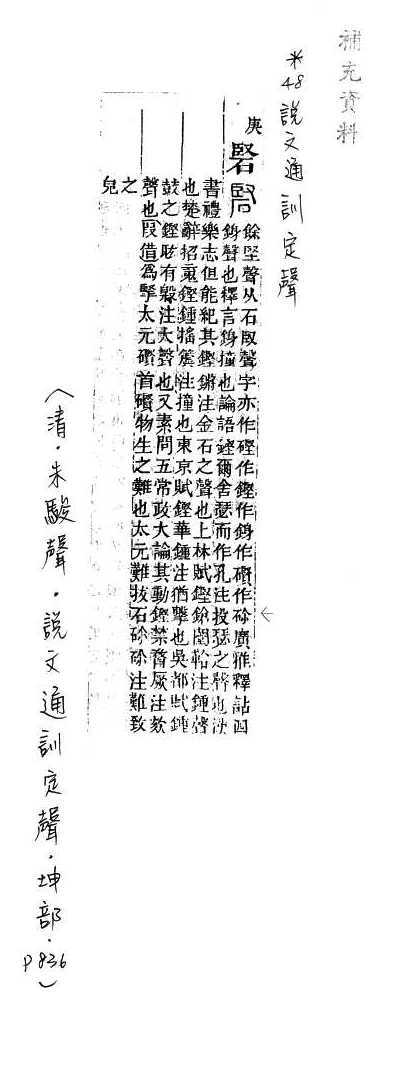 補充資料
*48說文通訓定聲
庚
硻
餘堅聲从石臤聲字亦作硜作鏗作銵作礥作硍廣雅釋詁四
銵聲也釋言銵撞也論語鏗爾舍瑟而作孔注投瑟之聲也漢
書禮樂志但能紀其鏗鏘注金石之聲也上林賦鏗鎗闛鞈注鍾聲
也楚辭招䰟鏗鍾搖簴注撞也東京賦鏗華鐘注猶擊也吳都賦鍾
鼓之鏗耾有毀注大聲也又素問五常政大論其動鏗禁瞀厥注欬
聲也叚借為掔太元礥首礥物生之難也太元難拔石硍硍注難致
之
皃
(清.朱駿聲.說文通訓定聲.坤部.P836)